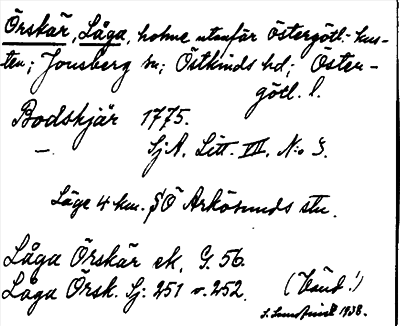 Örskär, Låga, holme utanför Östergötl:s kus-
ten; Jonsberg sn; Östkinds hd; Öster-
götl. l.
Bodskjär 1775.
— Sj.A. Litt. III. N:o 3.
Läge 4 km. SÖ Arkösunds stn.
Låga Örskär ek. G. 56.
Låga Örsk. Sj: 251 o. 252.
(Vänd!)
1938.